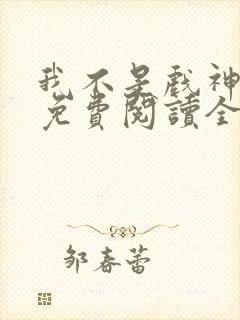 我不是戲神
免費閱讀全
邹春蕾